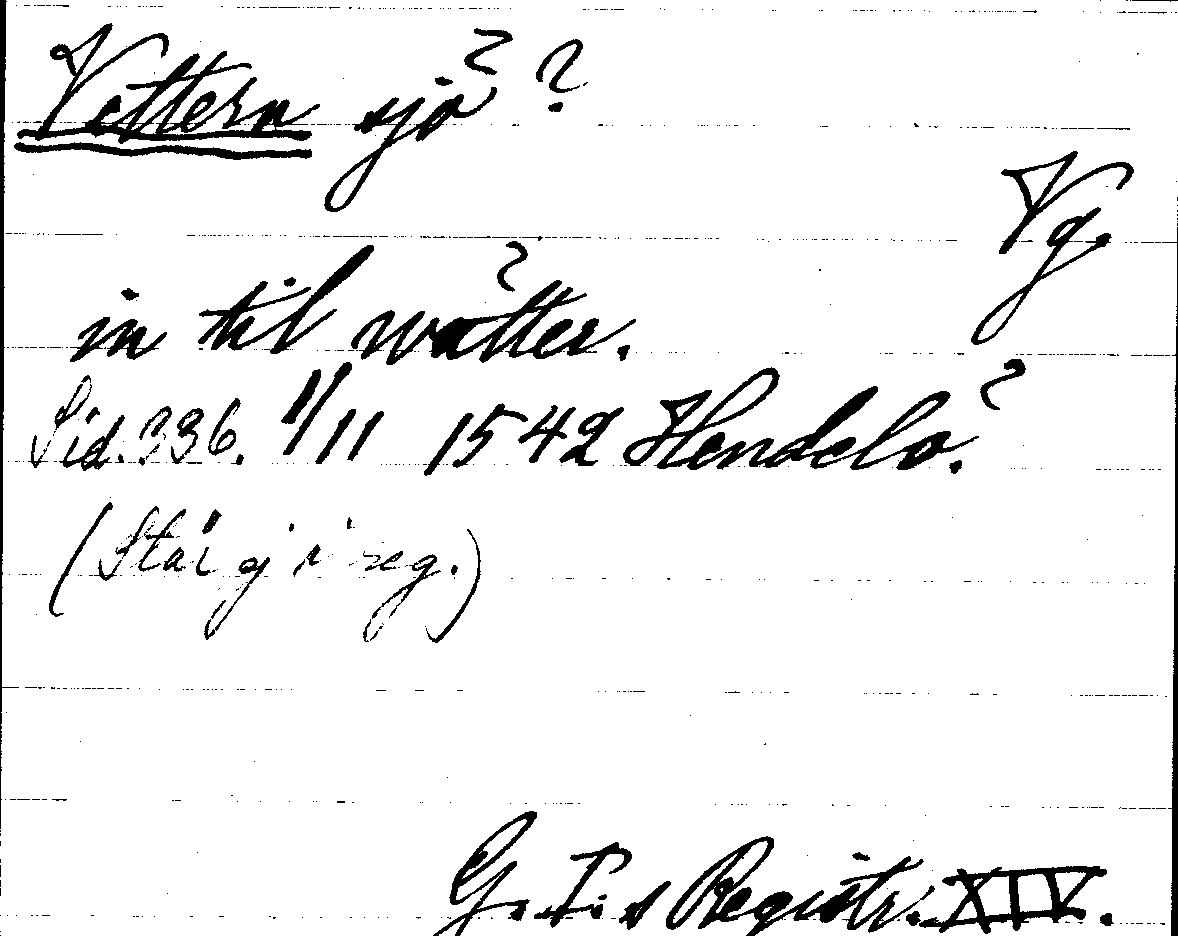 Vättern sjö ?
Vg.
in til wätter.
Sid. 336. 1/11 1542 Hendelö.
(Står ej i reg.)
G. I:s Registr. XIV.